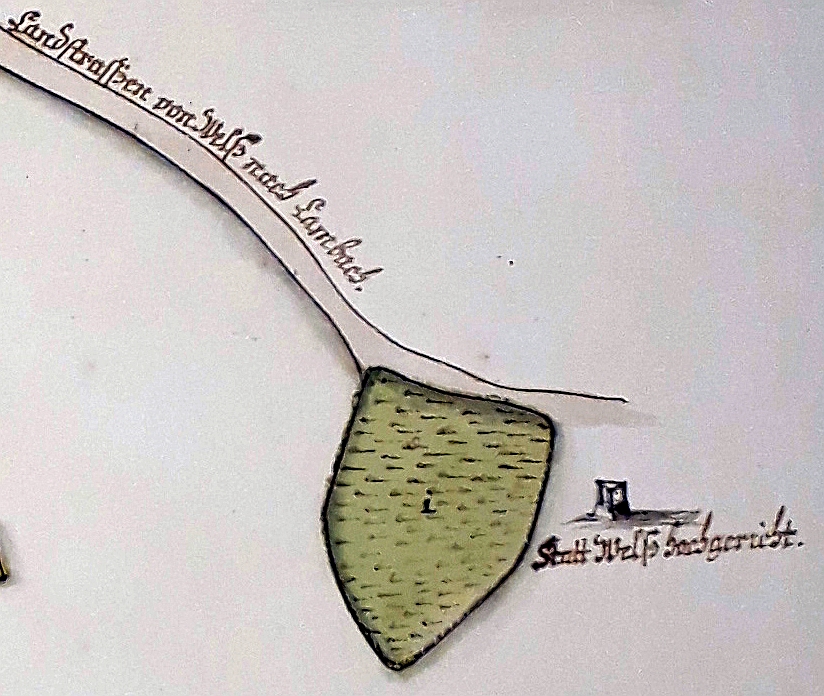 Landstrassen von Welß nach Lambach.
i
Statt Welß hochgericht.